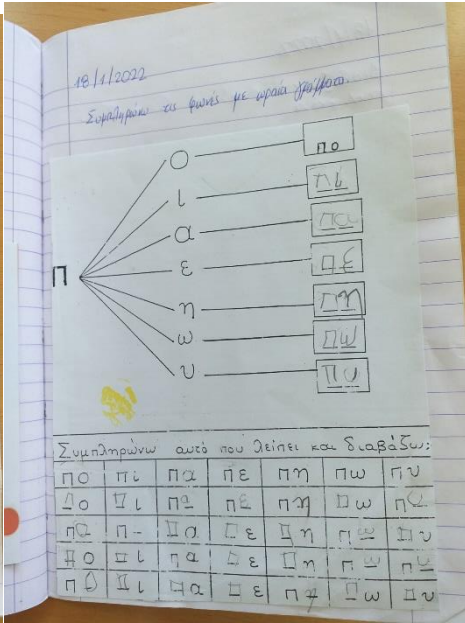 18/1/2022
Συμπληρώνω τις φωνές με ωραία γράμματα.
Π
ο πο
ι πι
α πα
ε πε
η πη
ω πω
υ πυ
Συμπληρώνω αυτό που λείπει και διαβάζω:
πο πι πα πε πη πω πυ
πο πι πα πε πη πω πυ
πα π- πα πε πη πω πυ
πο πι πα πε πη πω πυ
πο πι πα πε πη πω πυ